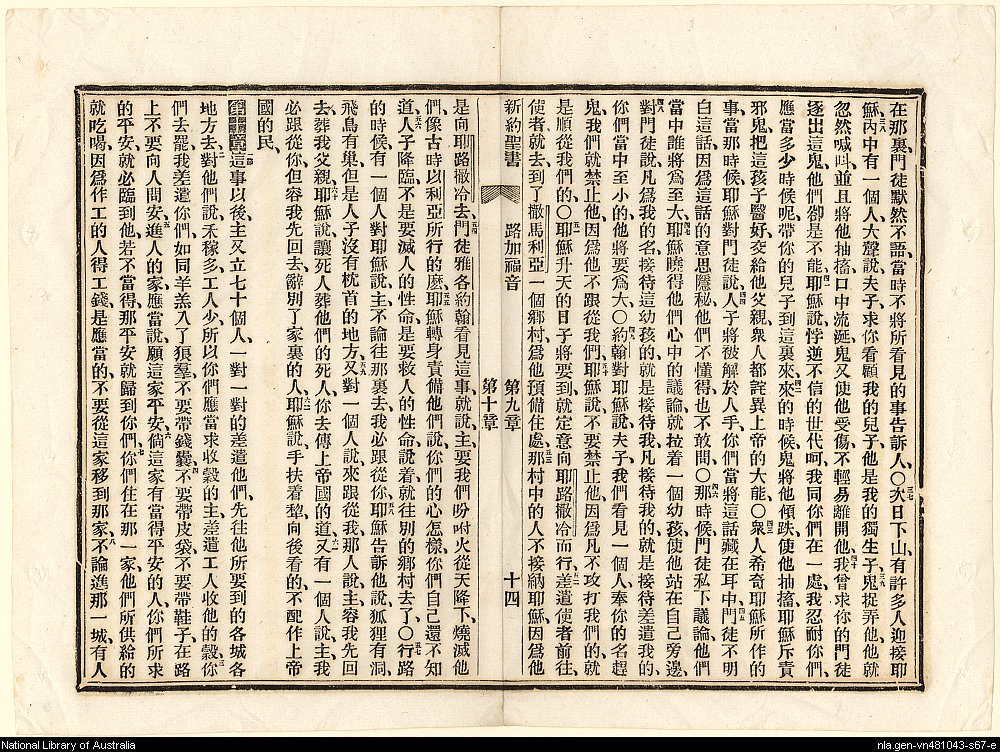 在那裏門徒默然不語、當時不將所看見的事告訴人、○次日下山、有許多人迎接耶
穌內中有一個人大聲說夫子求你看顧我的兒子他是我的獨生子鬼捉弄他他就
忽然喊呌並且將他抽搐口中流涎鬼又使他受傷不輕易離開他我曾求你的門徒
逐出這鬼他們卻是不能耶穌說悖逆不信的世代呵我同你們在一處我忍耐你們、
應當多少時候呢帶你的兒子到這裏來來的時候鬼將他傾跌使他抽搐耶穌斥責
邪鬼把這孩子醫好交給他父親衆人都詫異上帝的大能○衆人希奇耶穌所作的
事當那時候耶穌對門徒說人子將被解於人手你們當將這話藏在耳中門徒不明
白這話因爲這話的意思隱秘他們不懂得也不敢問○那時候門徒私下議論他們
當中誰將爲至大耶穌曉得他們心中的議論就拉着一個幼孩使他站在自己旁邊
對門徒說凡爲我的名接待這幼孩的就是接待我凡接待我的就是接待差遣我的、
你們當中至小的他將要爲大○約翰對耶穌說夫子我們看見一個人奉你的名趕
鬼我們就禁止他因爲他不跟從我們耶穌說不要禁止他因爲凡不攻打我們的就
是順從我們的○耶穌升天的日子將要到就定意向耶路撒冷而行差遣使者前往
使者就去到了撒馬利亞一個鄉村爲他預備住處那村中的人不接納耶穌因爲他
新約聖書 路加福音 第九章 第十章 十四
是向耶路撒冷去門徒雅各約翰看見這事就說主要我們吩咐火從天降下燒滅他
們像古時以利亞所行的麽耶穌轉身責備他們說你們的心怎樣你們自己還不知
道人子降臨不是要滅人的性命是要救人的性命說着就往別的鄉村去了○行路
的時候有一個人對耶穌說主不論往那裏去我必跟從你耶穌告訴他說狐狸有洞、
飛鳥有巢但是人子沒有枕首的地方又對一個人說來跟從我那人說主容我先回
去葬我父親耶穌說讓死人葬他們的死人你去傳上帝國的道又有一個人說主我
必跟從你但容我先回去辭別了家裏的人耶穌說手扶着犂向後看的不配作上帝
國的民、
第十章這事以後主又立七十個人一對一對的差遣他們先往他所要到的各城各
地方去對他們說禾稼多工人少所以你們應當求收穀的主差遣工人收他的穀你
們去罷我差遣你們如同羊羔入了狼羣不要帶錢囊不要帶皮袋不要帶鞋子在路
上不要向人問安進人的家應當說願這家平安倘這家有當得平安的人你們所求
的平安就必臨到他若不當得那平安就歸到你們你們住在那一家他們所供給的
就吃喝因爲作工的人得工錢是應當的不要從這家移到那家不論進那一城有人
National Library of Australia
nla.gen-vn481043-s67-e